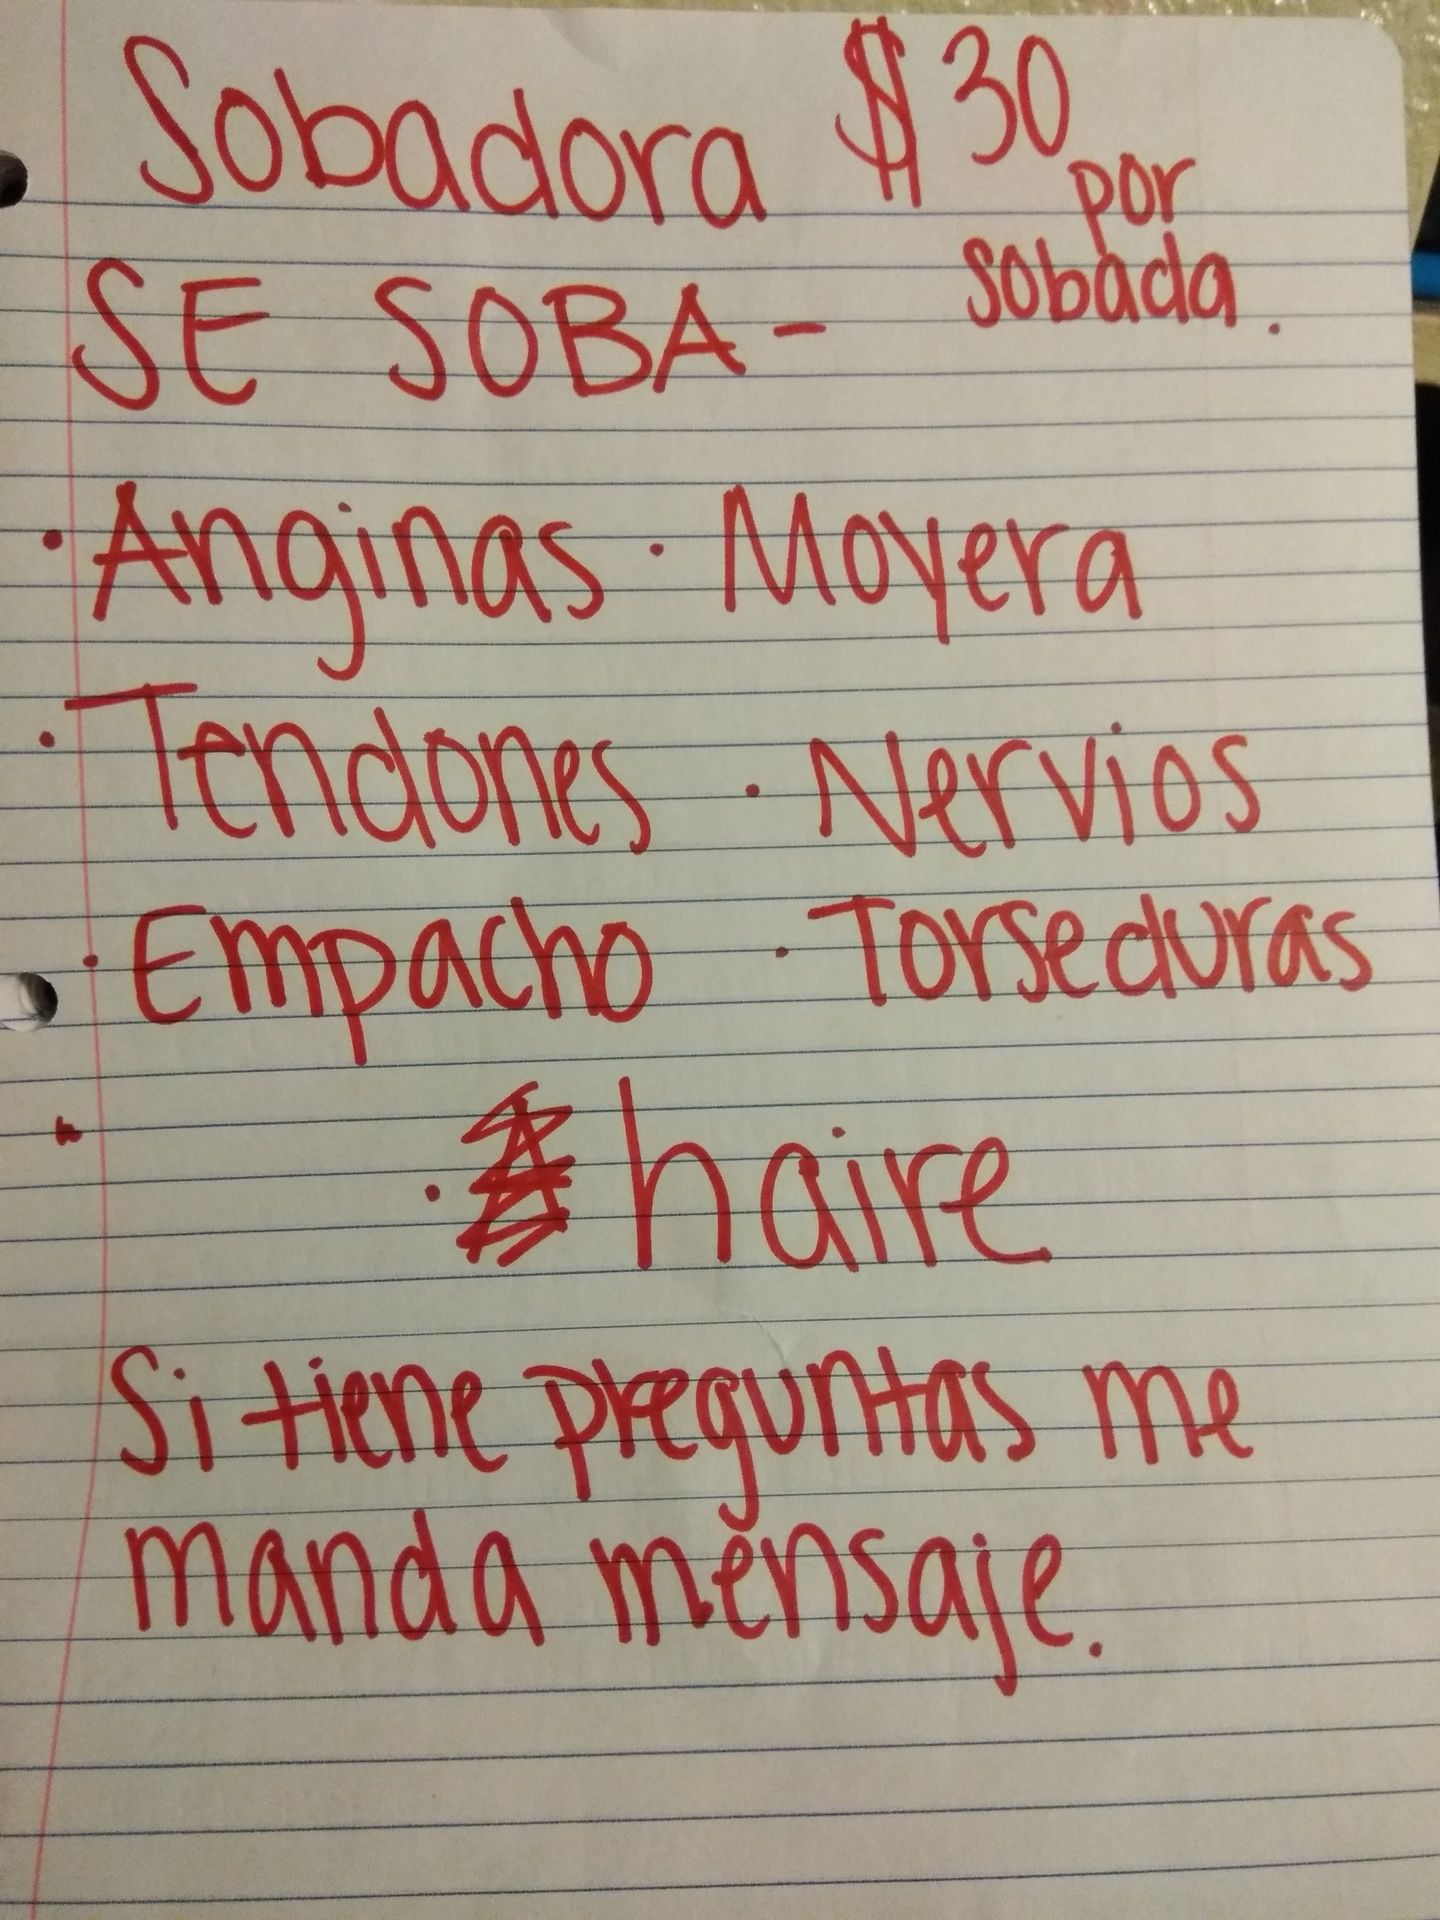 Sobadora $30
por
sobada.
SE SOBA-
· Anginas · Moyera
· Tendones · Nervios
· Empacho · Torseduras
· haire
Si tiene preguntas me
manda mensaje.